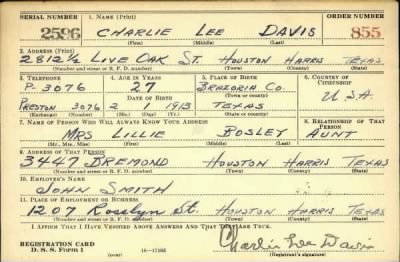 SERIAL NUMBER 1. NAME (Print) ORDER NUMBER
2596 CHARLIE LEE DAVIS 855
(First) (Middle) (Last)
2. ADDRESS (Print)
2812½ LIVE OAK ST. HOUSTON HARRIS TEXAS
(Number and street or R. F. D. number) (Town) (County) (State)
3. TELEPHONE 4. AGE IN YEARS 5. PLACE OF BIRTH 6. COUNTRY OF CITIZENSHIP
P-3076 27 BRAZORIA CO.
DATE OF BIRTH (Town or county) U.S.A.
PRESTON 3076 2 1 1913 TEXAS
(Exchange) (Number) (Mo.) (Day) (Yr.) (State or country)
7. NAME OF PERSON WHO WILL ALWAYS KNOW YOUR ADDRESS 8. RELATIONSHIP OF THAT PERSON
MRS LILLIE BOSLEY AUNT
(Mr., Mrs., Miss) (First) (Middle) (Last)
9. ADDRESS OF THAT PERSON
3447 DREMOND HOUSTON HARRIS TEXAS
(Number and street or R. F. D. number) (Town) (County) (State)
10. EMPLOYER'S NAME
JOHN SMITH
11. PLACE OF EMPLOYMENT OR BUSINESS
1207 Rosslyn St. HOUSTON HARRIS TEXAS
(Number and street or R. F. D. number) (Town) (County) (State)
I AFFIRM THAT I HAVE VERIFIED ABOVE ANSWERS AND THAT THEY ARE TRUE.
REGISTRATION CARD
D. S. S. Form 1 Charlie Lee Davis
(Registrant's signature)